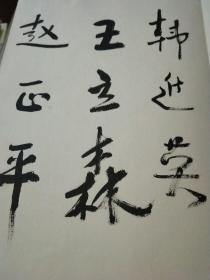 韩进英
王立森
赵正平